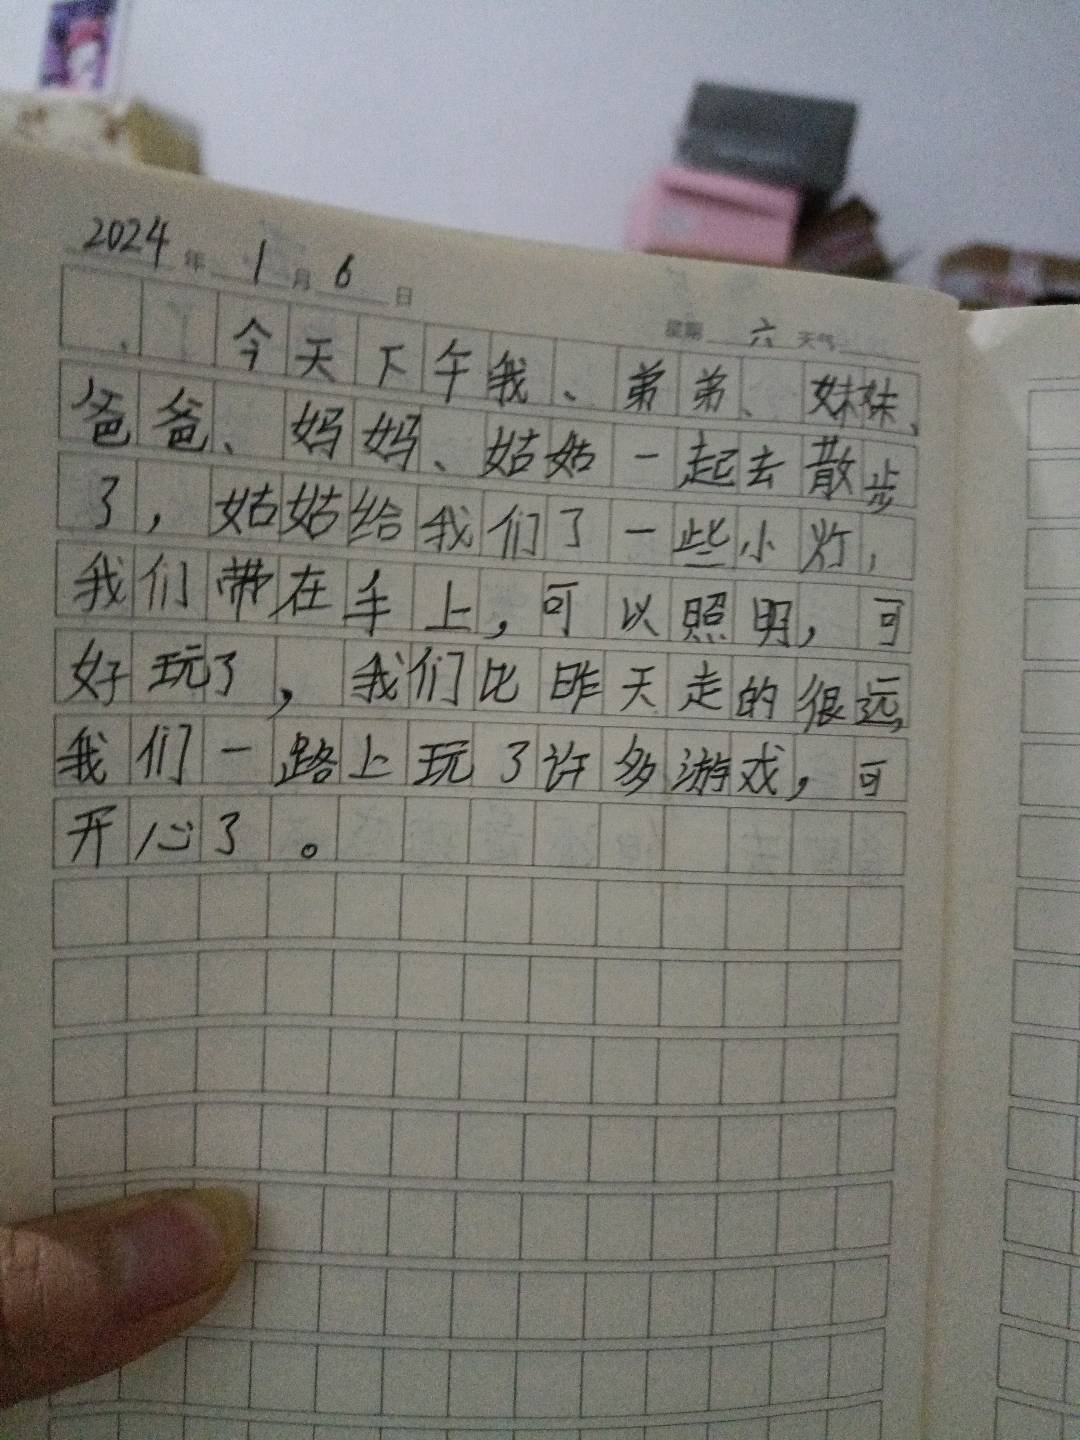 2024年1月6日 星期六 天气
今天下午我、弟弟、妹妹、
爸爸、妈妈、姑姑一起去散步
了，姑姑给我们了一些小灯，
我们带在手上，可以照明，可
好玩了，我们比昨天走的很远，
我们一路上玩了许多游戏，可
开心了。